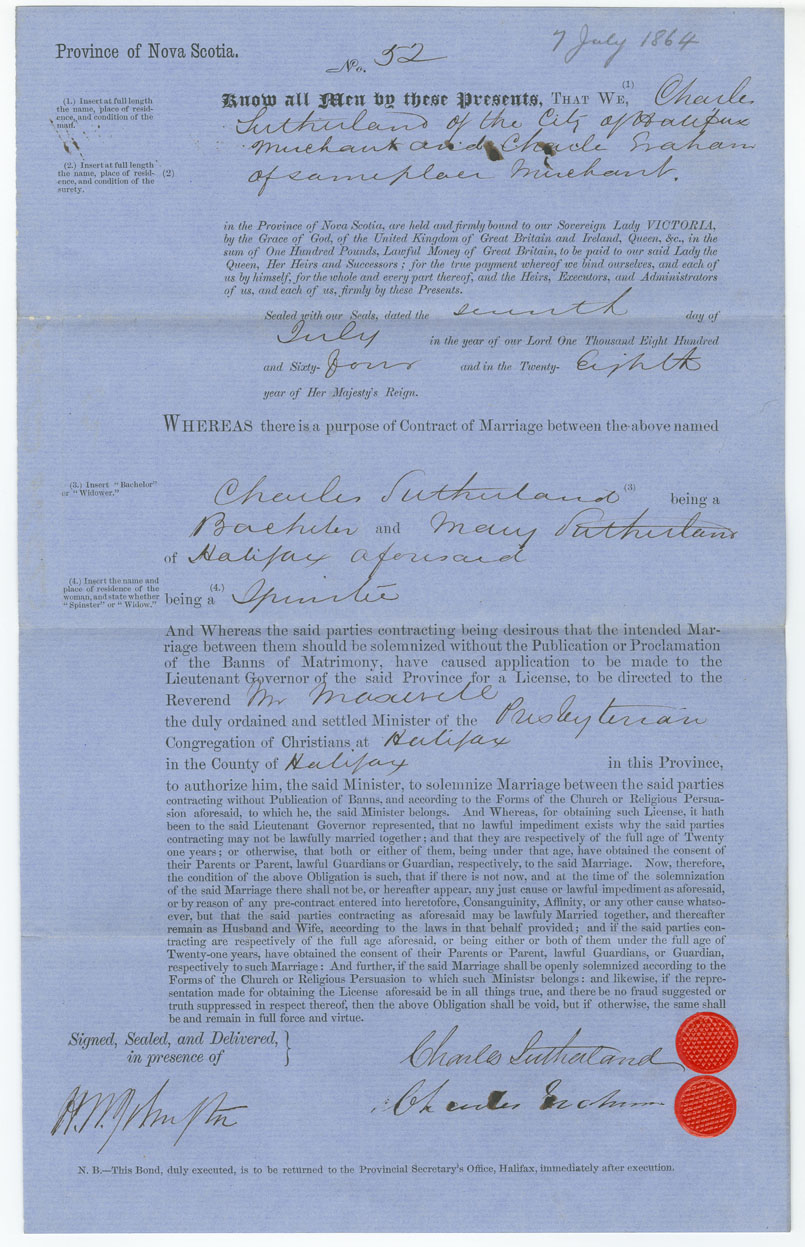 Province of Nova Scotia.
7 July 1864
No. 52
(1.) Insert at full length
the name, place of resid-
ence, and condition of the
man.
Know all Men by these Presents, THAT WE, (1) Charles
Sutherland of the City of Halifax
Merchant and Charle Graham
(2.) Insert at full length
the name, place of resid-
ence, and condition of the
surety.
(2) of same place Merchant.
in the Province of Nova Scotia, are held and firmly bound to our Sovereign Lady VICTORIA,
by the Grace of God, of the United Kingdom of Great Britain and Ireland, Queen, &c., in the
sum of One Hundred Pounds, Lawful Money of Great Britain, to be paid to our said Lady the
Queen, Her Heirs and Successors ; for the true payment whereof we bind ourselves, and each of
us by himself, for the whole and every part thereof, and the Heirs, Executors, and Administrators
of us, and each of us, firmly by these Presents.
Sealed with our Seals, dated the seventh day of
July in the year of our Lord One Thousand Eight Hundred
and Sixty- four and in the Twenty- Eighth
year of Her Majesty's Reign.
WHEREAS there is a purpose of Contract of Marriage between the above named
(3.) Insert "Bachelor"
or "Widower."
Charles Sutherland (3) being a
Bachelor and Mary Sutherland
of Halifax aforesaid
(4.) Insert the name and
place of residence of the
woman, and state whether
"Spinster" or "Widow."
being a (4.) Spinster
And Whereas the said parties contracting being desirous that the intended Mar-
riage between them should be solemnized without the Publication or Proclamation
of the Banns of Matrimony, have caused application to be made to the
Lieutenant Governor of the said Province for a License, to be directed to the
Reverend Mr Maxwell
the duly ordained and settled Minister of the Presbyterian
Congregation of Christians at Halifax
in the County of Halifax in this Province,
to authorize him, the said Minister, to solemnize Marriage between the said parties
contracting without Publication of Banns, and according to the Forms of the Church or Religious Persua-
sion aforesaid, to which he, the said Minister belongs. And Whereas, for obtaining such License, it hath
been to the said Lieutenant Governor represented, that no lawful impediment exists why the said parties
contracting may not be lawfully married together; and that they are respectively of the full age of Twenty
one years; or otherwise, that both or either of them, being under that age, have obtained the consent of
their Parents or Parent, lawful Guardians or Guardian, respectively, to the said Marriage. Now, therefore,
the condition of the above Obligation is such, that if there is not now, and at the time of the solemnization
of the said Marriage there shall not be, or hereafter appear, any just cause or lawful impediment as aforesaid,
or by reason of any pre-contract entered into heretofore, Consanguinity, Affinity, or any other cause whatso-
ever, but that the said parties contracting as aforesaid may be lawfuly Married together, and thereafter
remain as Husband and Wife, according to the laws in that behalf provided; and if the said parties con-
tracting are respectively of the full age aforesaid, or being either or both of them under the full age of
Twenty-one years, have obtained the consent of their Parents or Parent, lawful Guardians, or Guardian,
respectively to such Marriage: And further, if the said Marriage shall be openly solemnized according to the
Forms of the Church or Religious Persuasion to which such Ministsr belongs: and likewise, if the repre-
sentation made for obtaining the License aforesaid be in all things true, and there be no fraud suggested or
truth suppressed in respect thereof, then the above Obligation shall be void, but if otherwise, the same shall
be and remain in full force and virtue.
Signed, Sealed, and Delivered,
in presence of
Charles Sutherland
H. W. Johnston
Charles Graham
N. B.—This Bond, duly executed, is to be returned to the Provincial Secretary's Office, Halifax, immediately after execution.